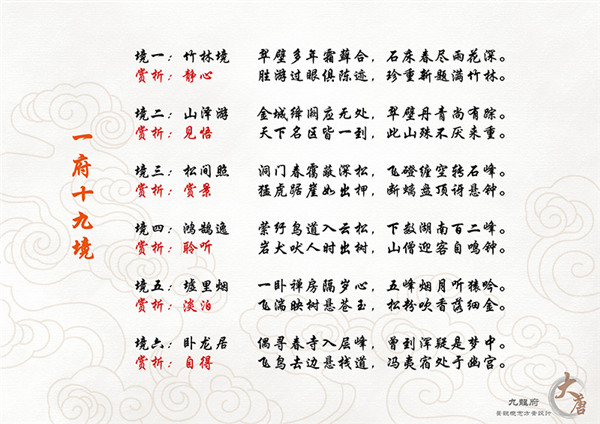 一府十九境
境一：竹林境 翠壁多年霜藓合，石床春尽雨花深。
赏析：静心 胜游过眼俱陈迹，珍重新题满竹林。
境二：山泽游 金城绛阙应无处，翠壁丹青尚有踪。
赏析：见悟 天下名区皆一到，此山殊不厌来重。
境三：松间照 洞门春霭蔽深松，飞磴缠空转石峰。
赏析：赏景 猛虎踞崖如出押，断螭盘顶讶悬钟。
境四：鸿鹄逸 萦纡鸟道入云松，下数湖南百二峰。
赏析：聆听 岩犬吠人时出树，山僧迎客自鸣钟。
境五：墟里烟 一卧禅房隔岁心，五峰烟月听猿吟。
赏析：淡泊 飞湍映树悬苍玉，松粉吹香落细金。
境六：卧龙居 偶寻春寺入层峰，曾到浑疑是梦中。
赏析：自得 飞鸟去边悬栈道，冯夷宿处于幽宫。
九龍府
景观概念方案设计
大唐